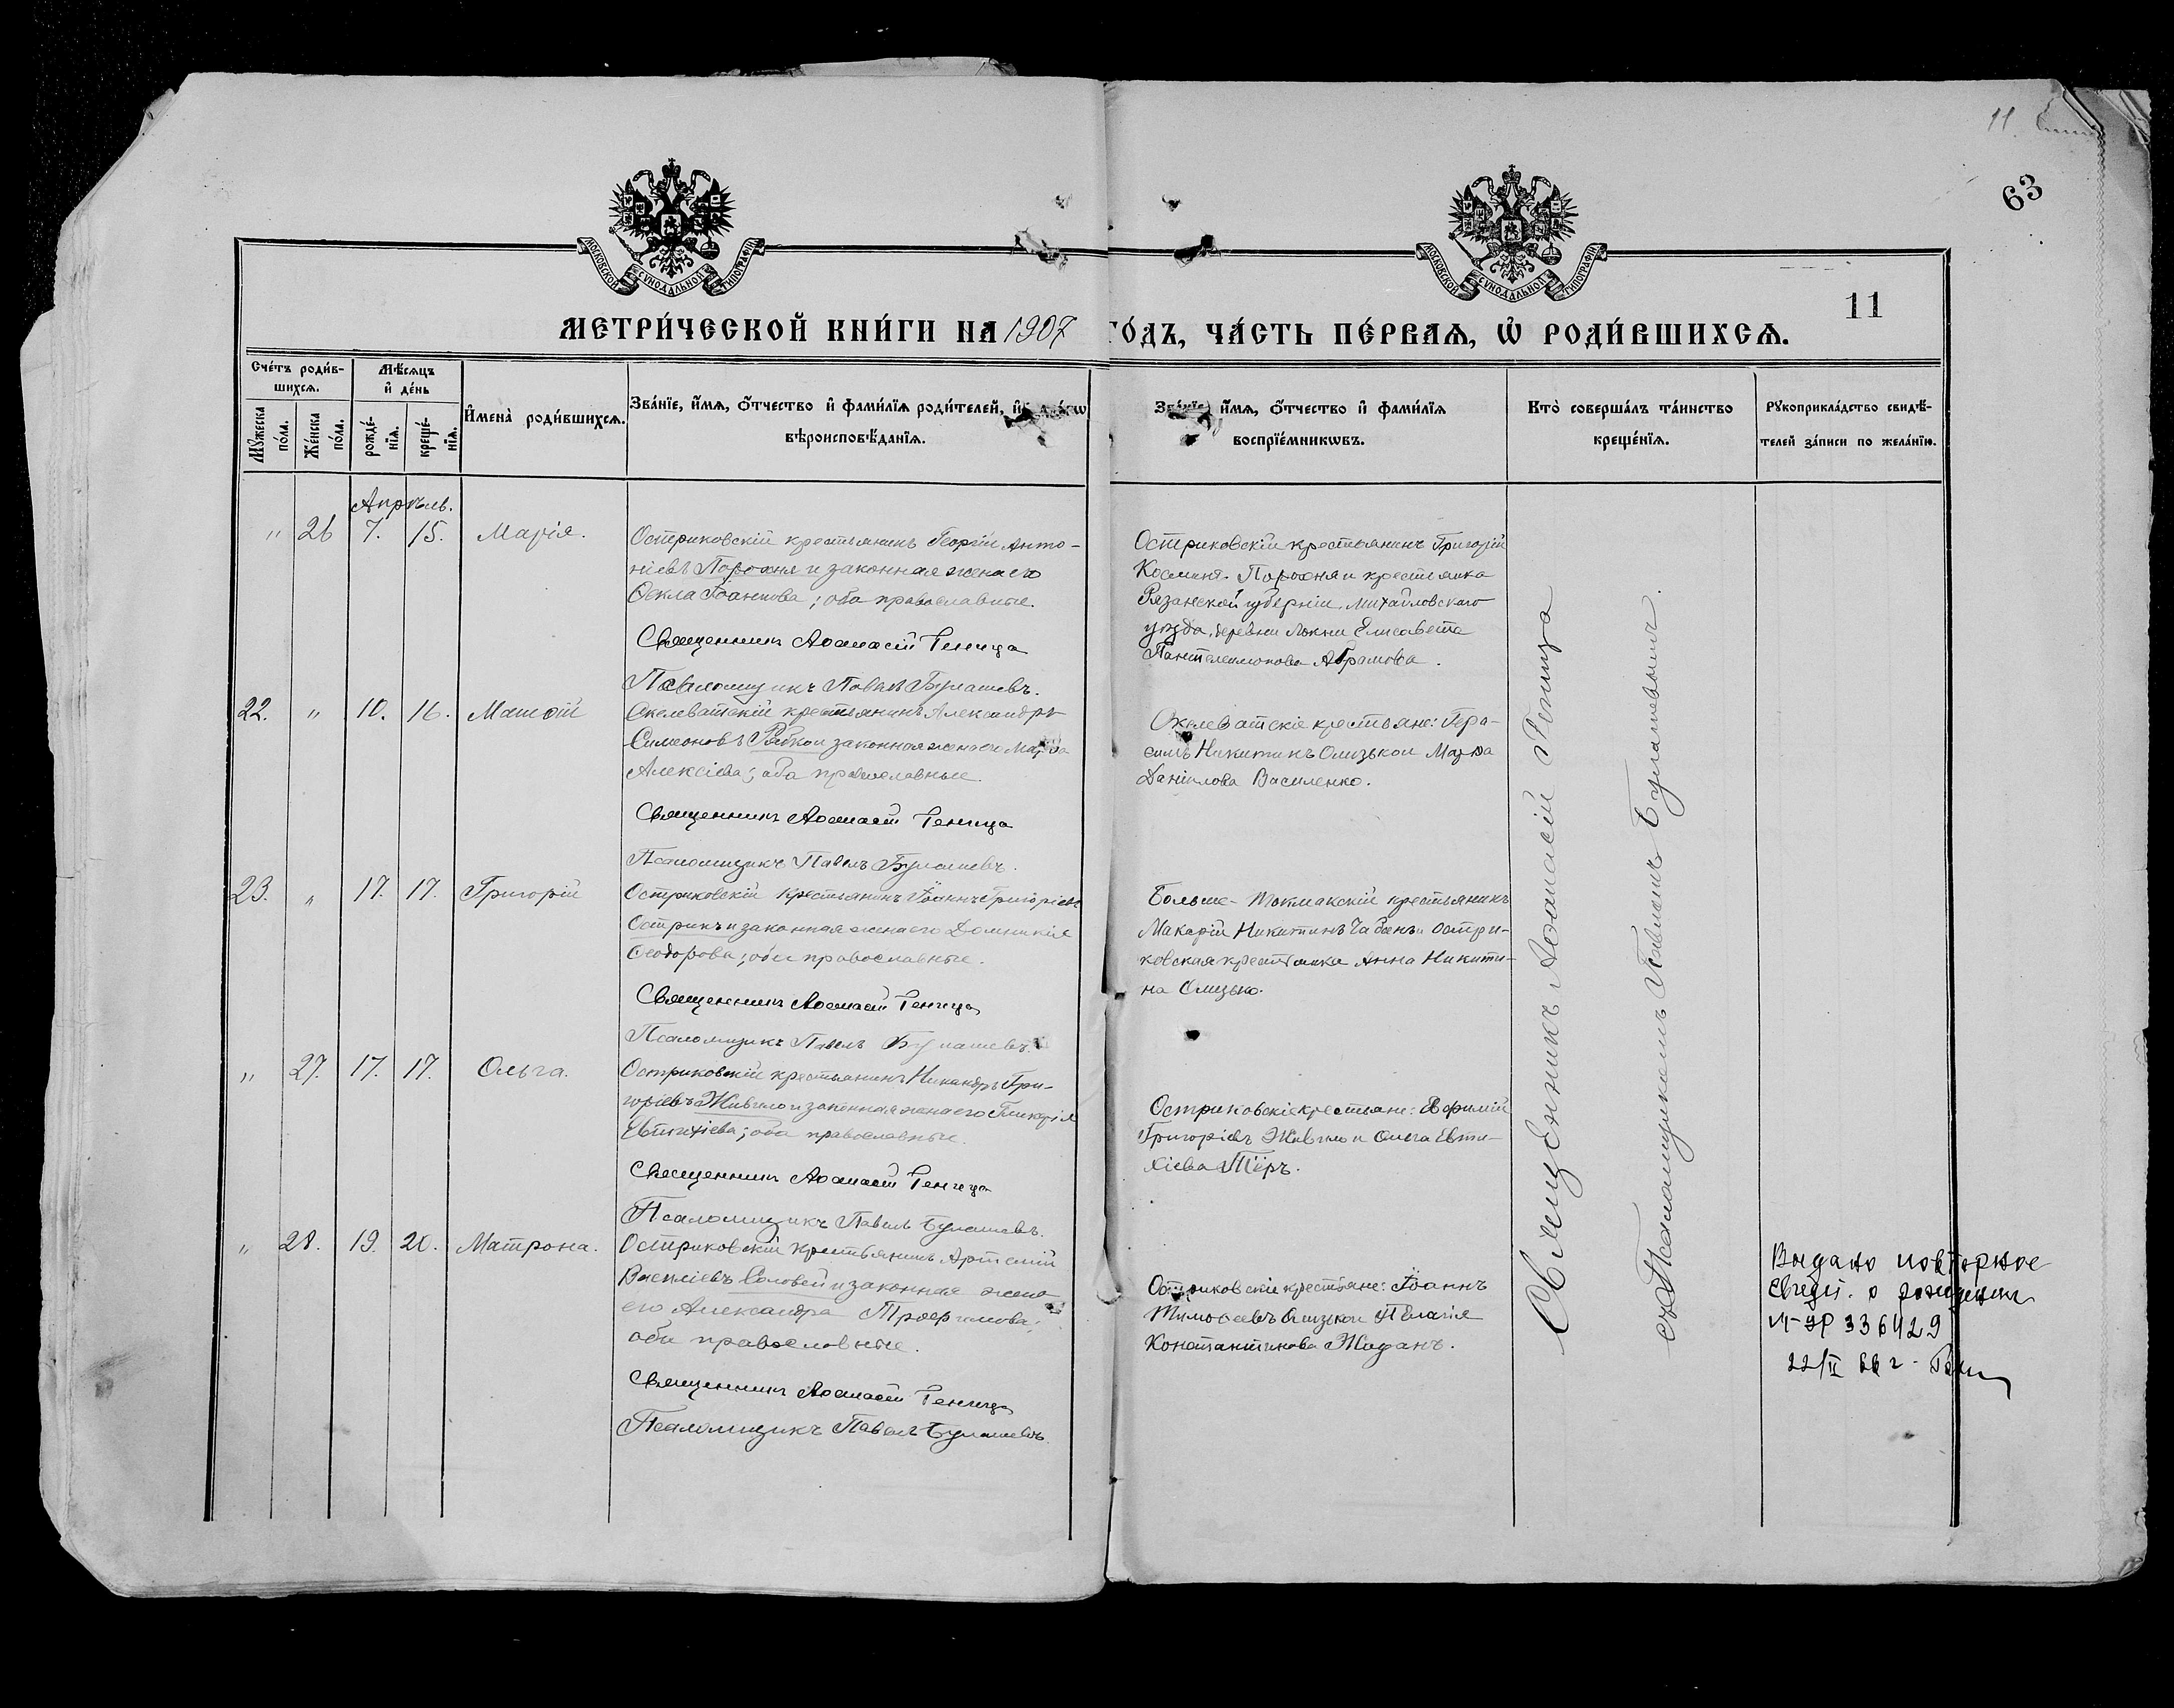 11
63
МОСКОВСКОЙ СѴНОДАЛЬНОЙ ТИПОГРАФІИ
МОСКОВСКОЙ СѴНОДАЛЬНОЙ ТИПОГРАФІИ
11
МЕТРИ́ЧЕСКОЙ КНИ́ГИ НА 1907 ГО́ДЪ, ЧА́СТЬ ПЕ́РВАЯ, Ѡ РОДИ́ВШИХСЯ.
Сче́тъ роди́в-
шихся.
Мѣ́сяцъ
и де́нь
Мꙋ́жеска
по́ла.
Же́нска
по́ла.
рожде́-
нїя.
креще́-
нїя.
И҆мена̀ роди́вшихся.
Зва́нїе, и҆́мя, ѻ҆́тчество и҆ фами́лїя роди́телей, и҆
вѣроисповѣ́данїя.
Зва́нїе, и҆́мя, ѻ҆́тчество и҆ фами́лїя
воспрїе́мникѡвъ.
Кто̀ соверша́лъ та́инство
креще́нїя.
Рꙋкоприкла́дство свидѣ́-
телей за́писи по жела́нїю.
Апрѣль.
" 26 7. 15. Марія.
Остриковскій крестьянинъ Георгій Анто-
ніевъ Порохня и законная жена его
Ѳекла Іоаннова; оба православные.
Священникъ Аѳанасій Геница
Псаломщикъ Павелъ Булашевъ.
Остриковскій крестьянинъ Григорій
Косминъ Порохня и крестьянка
Рязанской губерніи, Михайловскаго
уѣзда, деревни Локни Елисавета
Пантелеимонова Абрамова.
22. " 10. 16. Матѳій
Скелеватскій крестьянинъ Александръ
Симеоновъ Рябко и законная жена его Марѳа
Алексіева; оба православные.
Священникъ Аѳанасій Геница
Псаломщикъ Павелъ Булашевъ.
Скелеватскіе крестьяне: Гера-
симъ Никитинъ Слизько и Марѳа
Даніилова Василенко.
23. " 17. 17. Григорій
Остриковскій крестьянинъ Іоаннъ Григоріевъ
Острикъ и законная жена его Домникія
Ѳеодорова; оба православные.
Священникъ Аѳанасій Геница
Псаломщикъ Павелъ Булашевъ.
Больше-Токмакскій крестьянинъ
Макарій Никитинъ Чабанъ и остри-
ковская крестьянка Анна Никити-
на Слизько.
" 27. 17. 17. Ольга.
Остриковскій крестьянинъ Никандръ Гри-
горіевъ Живило и законная жена его Гликерія
Евтихіева; оба православные.
Священникъ Аѳанасій Геница
Псаломщикъ Павелъ Булашевъ.
Остриковскіе крестьяне: Евфимій
Григоріевъ Живило и Ольга Евти-
хіева Тїръ.
" 28. 19. 20. Матрона.
Остриковскій крестьянинъ Артемій
Василіевъ Соловей и законная жена
его Александра Трофимова;
оба православные.
Священникъ Аѳанасій Геница
Псаломщикъ Павелъ Булашевъ
Остриковскіе крестьяне: Іоаннъ
Тимоѳеевъ Слизько и Пелагія
Константинова Жаданъ.
Священникъ Аѳанасій Геница
съ Псаломщикомъ Павломъ Булашевымъ.
Выдано повторное
свидет. о рождении
336429
22/II 66 г.